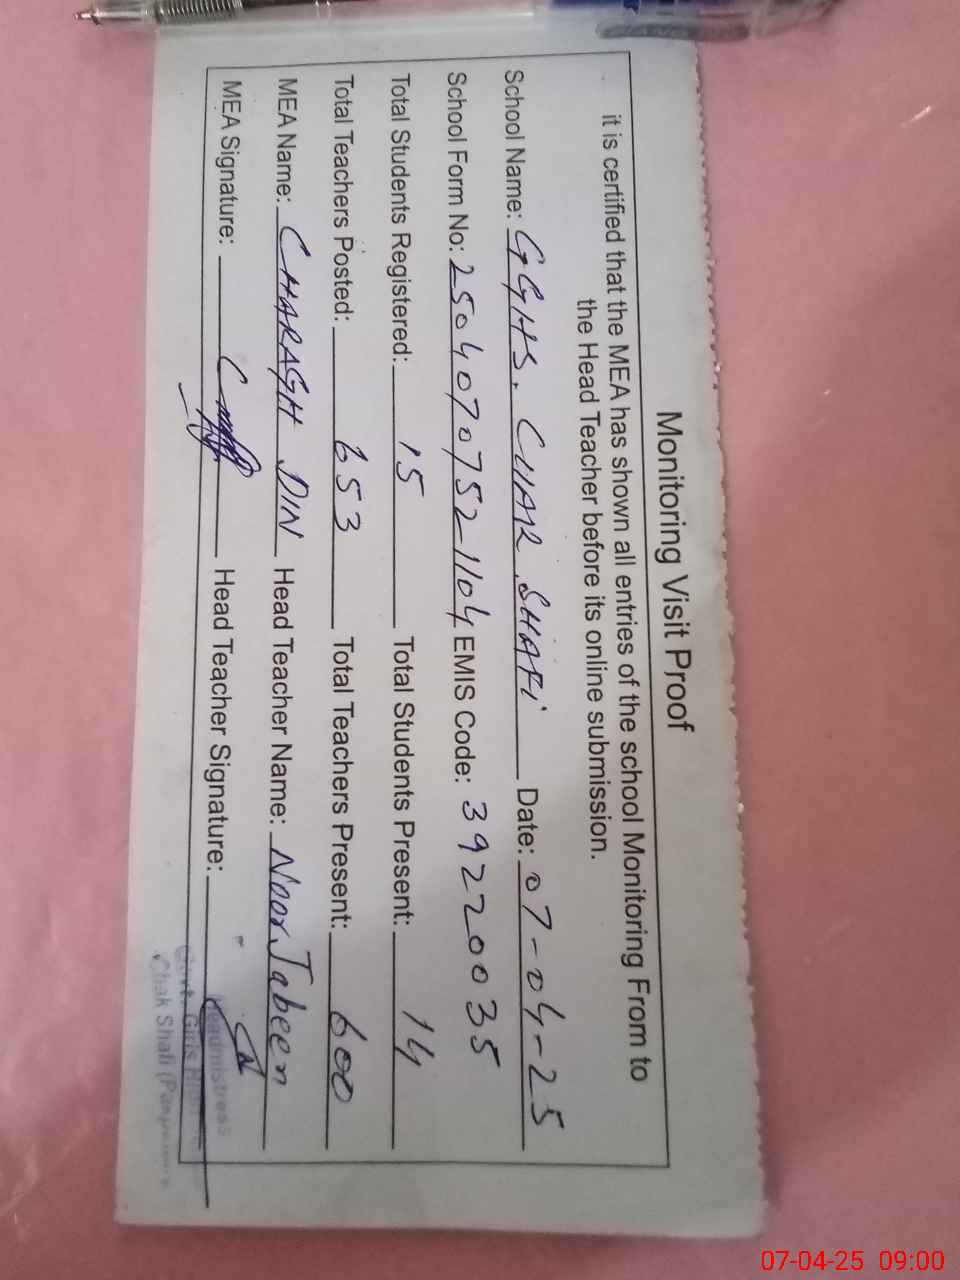 Monitoring Visit Proof
it is certified that the MEA has shown all entries of the school Monitoring From to
the Head Teacher before its online submission.
School Name: GGHS. CHAK SHAFI Date: 07-04-25
School Form No: 25040707521104 EMIS Code: 39220035
Total Students Registered: 15 Total Students Present: 14
Total Teachers Posted: 653 Total Teachers Present: 600
MEA Name: CHARAGH DIN Head Teacher Name: Noor Jabeen
MEA Signature: Head Teacher Signature:
Headmistress
Govt. Girls High
Chak Shafi
07-04-25 09:00